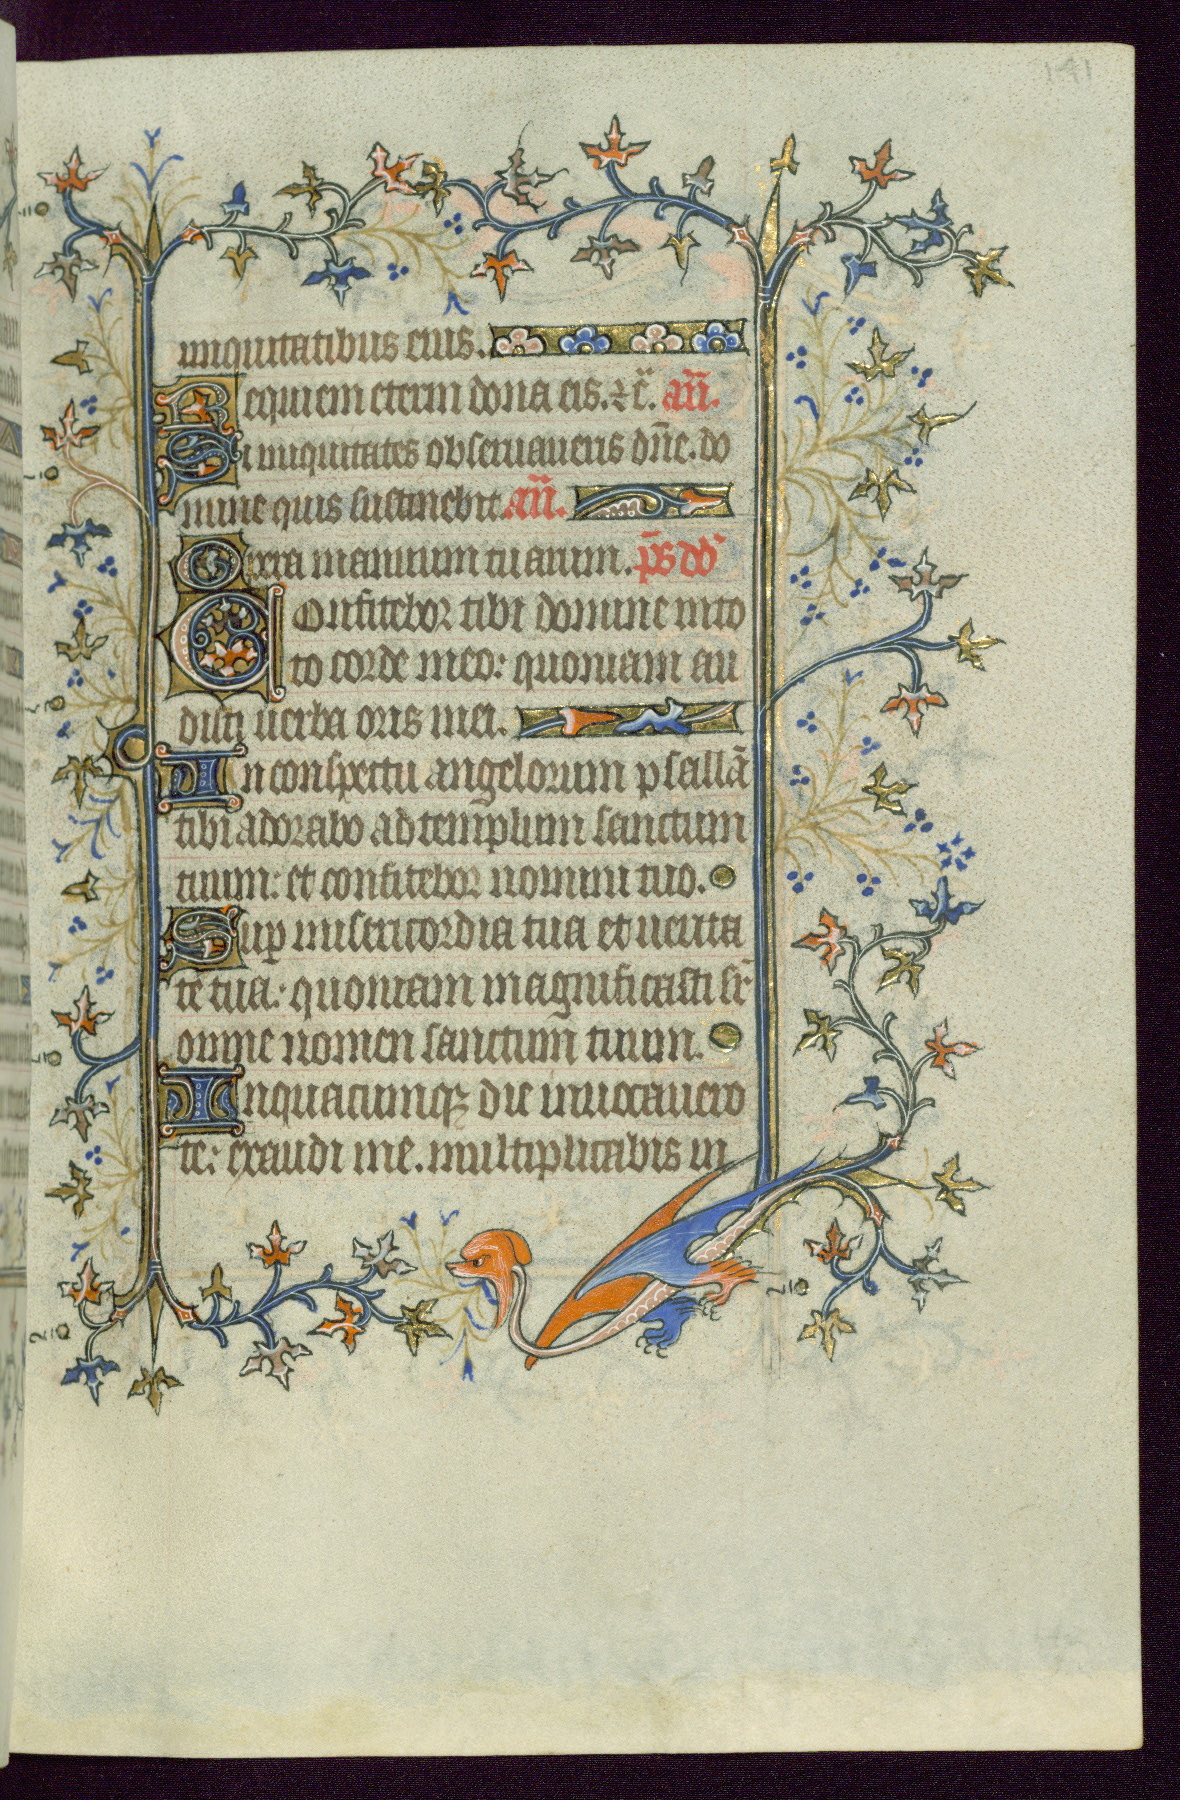 141
iniquitatibus eius.
Requiem eterni dona eis. ⁊c̃. añ.
Si iniquitates obseruaueris dñe. do
mine quis sustinebit. añ.
Opera manuum tuarum. p̃s dd̃
Confitebor tibi domine in to
to corde meo: quoniam au
disti uerba oris mei.
In conspectu angelorum psallã
tibi adorabo ad templum sanctum
tuum: et confitebor nomini tuo.
Sup misericordia tua et uerita
te tua: quoniam magnificasti sr̃
omne nomen sanctum tuum.
In quacumqꝫ die inuocauero
te: exaudi me. multiplicabis in